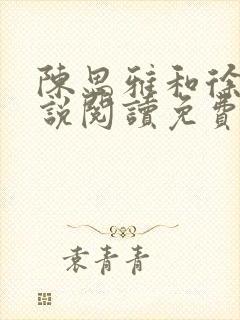 陳思雅和徐
說閱讀免費
袁青青